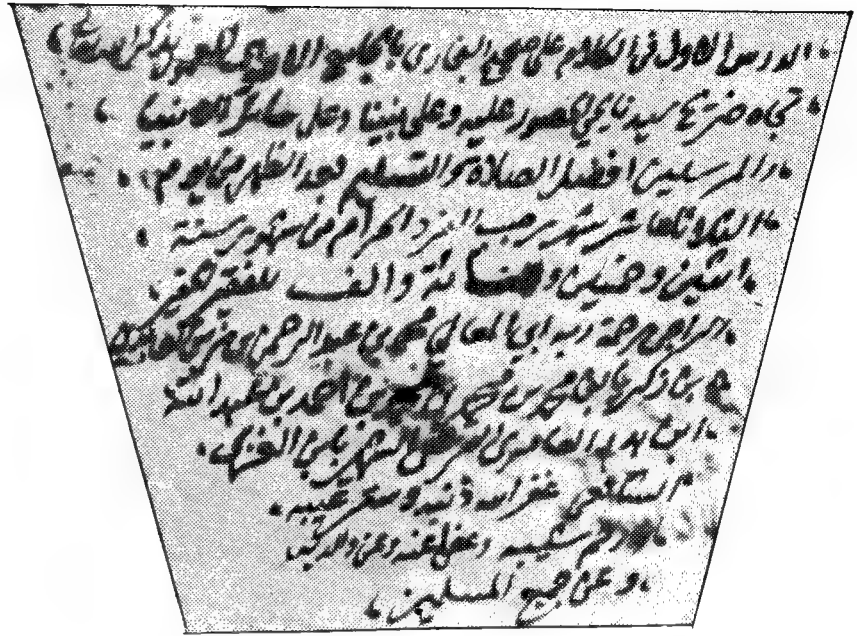 الدرس الاول في الكلام على صحيح البخاري بالجامع الاموي المعمور بذكر الله تعالى
تجاه ضريح سيدنا يحيى الحصور عليه وعلى نبينا وعلى سائر الانبيا
والمرسلين افضل الصلاة والتسليم بعد الظهر من يوم
الثلاثا عاشر شهر رجب الفرد الحرام من شهور سنة
اثنين وخمسين ومائة والف للفقير الحقير
الراجي رحمة ربه ابي المعالي محمد بن عبد الرحمن بن زين العابدين
بن زكريا بن محمد بن محمد بن محمد بن احمد بن عبد الله
ابن بدر العامري الشهير بابن الغزي
الشافعي غفر الله ذنبه وستر عيبه
ورحم شيبه وعفى عنه وعن والديه
وعن جميع المسلمين